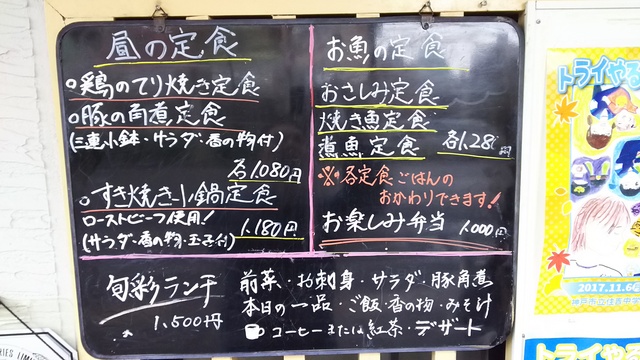 昼の定食
○鶏のてり焼き定食
○豚の角煮定食
(三連小鉢・サラダ・香の物付)
各1,080円
○すき焼き小鍋定食
ローストビーフ使用!
(サラダ・香の物・玉子付) 1,180円
お魚の定食
おさしみ定食
焼き魚定食
煮魚定食 各1,280円
※各定食ごはんの
おかわりできます!
お楽しみ弁当 1,000円
旬彩ランチ
1,500円
前菜・お刺身・サラダ・豚角煮
本日の一品・ご飯・香の物・みそ汁
コーヒーまたは紅茶・デザート
トライやる
2017.11.6
神戸市立住吉中学
トライやる